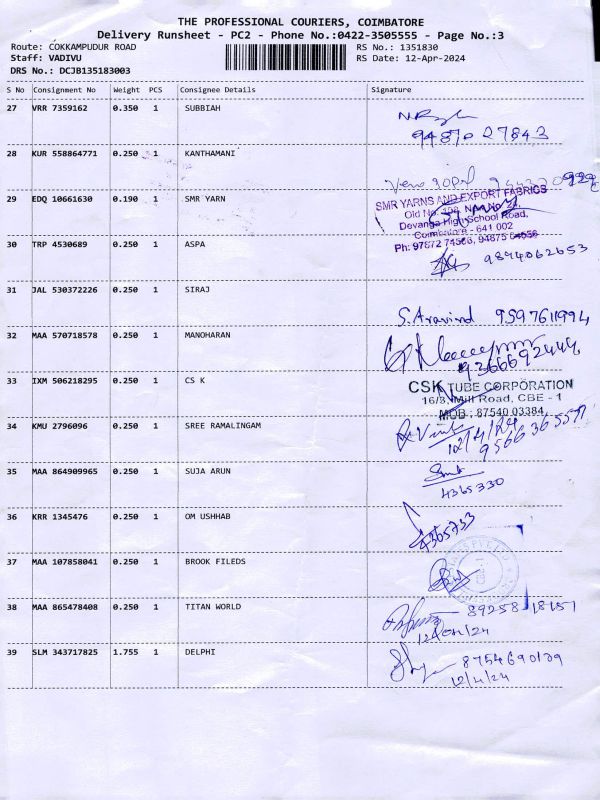 THE PROFESSIONAL COURIERS, COIMBATORE
Delivery Runsheet - PC2 - Phone No.:0422-3505555 - Page No.:3
Route: COKKAMPUDUR ROAD
RS No.: 1351830
Staff: VADIVU
RS Date: 12-Apr-2024
DRS No.: DCJB135183003
S No Consignment No Weight PCS Consignee Details Signature
27 VRR 7359162 0.350 1 SUBBIAH
94870 27843
28 KUR 558864771 0.250 1 KANTHAMANI
29 EDQ 10661630 0.190 1 SMR YARN
SMR YARNS AND EXPORT FABRICS
Devanga High School Road,
Coimbatore - 641 002
30 TRP 4530689 0.250 1 ASPA
9894062653
31 JAL 530372226 0.250 1 SIRAJ
S. Aravind 9597611994
32 MAA 570718578 0.250 1 MANOHARAN
9366692444
33 IXM 506218295 0.250 1 CS K
CSK TUBE CORPORATION
16/3, Mill Road, CBE - 1
MOB : 87540 03384
34 KMU 2796096 0.250 1 SREE RAMALINGAM
12/4/24
35 MAA 864909965 0.250 1 SUJA ARUN
4365330
36 KRR 1345476 0.250 1 OM USHHAB
4365733
37 MAA 107858041 0.250 1 BROOK FILEDS
38 MAA 865478408 0.250 1 TITAN WORLD
89258 18151
12/04/24
39 SLM 343717825 1.755 1 DELPHI
8754690139
12/4/24